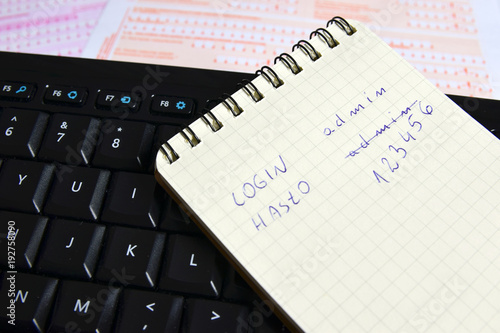 LOGIN admin
HASŁO admin
123456
F5
F6
F7
F8
6
^
7
&
8
*
Y
U
I
J
K
L
N
M
<
>
192758090
Adobe Stock